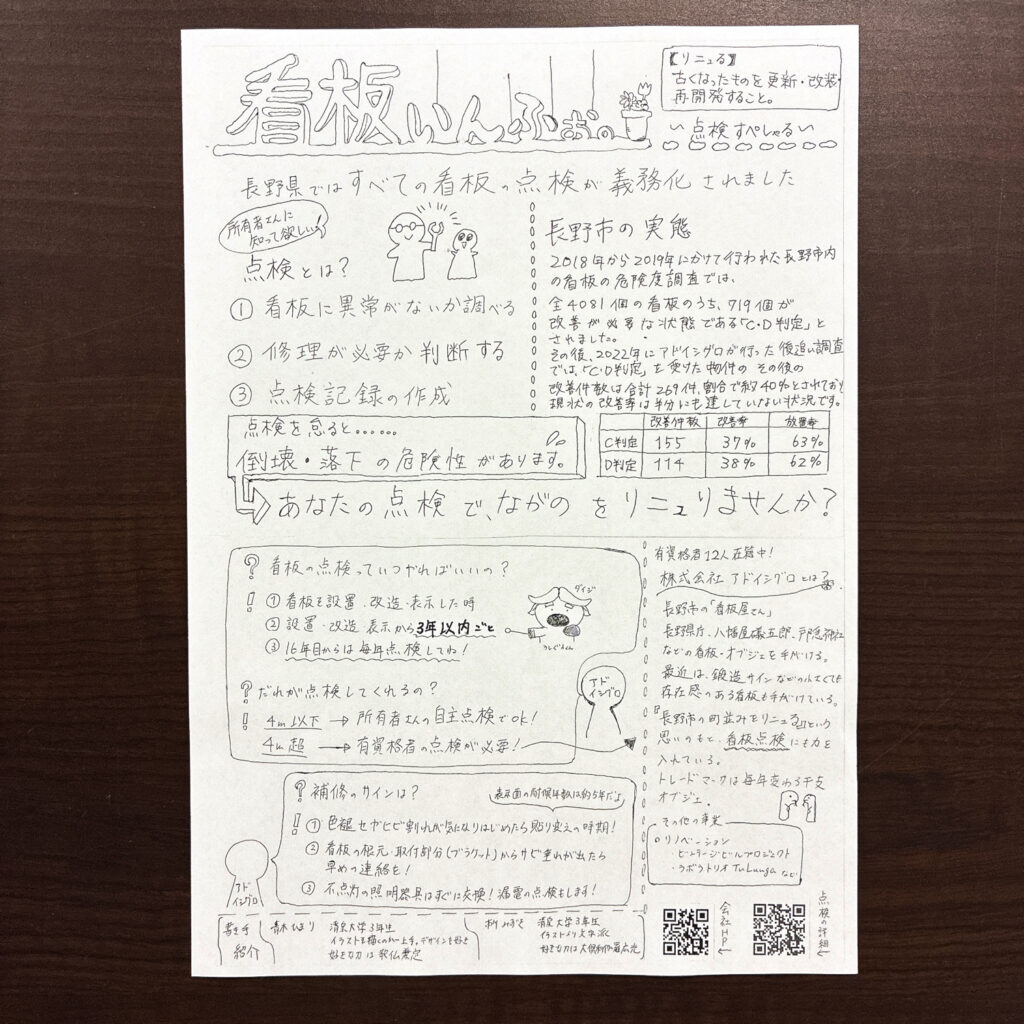 看板いんふぉの
【リニュる】
古くなったものを更新・改装・
再開発すること。
点検すぺしゃる
長野県ではすべての看板の点検が義務化されました
所有者さんに
知って欲しい!
点検とは?
① 看板に異常がないか調べる
② 修理が必要か判断する
③ 点検記録の作成
点検を怠ると……
倒壊・落下の危険性があります。
長野市の実態
2018年から2019年にかけて行われた長野市内
の看板の危険度調査では、
全4081個の看板のうち、719個が
改善が必要な状態である「C・D判定」と
されました。
その後、2022年にアドイシグロが行った後追い調査
では、「C・D判定」を受けた物件のその後の
改善件数は合計269件、割合で約40%とされており
現状の改善率は半分にも達していない状況です。
改善件数 改善率 放置率
C判定 155 37% 63%
D判定 114 38% 62%
あなたの点検で、ながのをリニュりませんか?
? 看板の点検っていつやればいいの?
! ① 看板を設置・改造・表示した時
② 設置・改造・表示から3年以内ごと
③ 16年目からは毎年点検してね!
ダイジ
アドイシグロ
? だれが点検してくれるの?
! 4m以下 → 所有者さんの自主点検でOK!
4m超 → 有資格者の点検が必要!
? 補修のサインは?
表示面の耐候年数は約5年だよ
! ① 色褪せやヒビ割れが気になりはじめたら貼り変えの時期!
② 看板の根元・取付部分(ブラケット)からサビ垂れが出たら
早めの連絡を!
③ 不点灯の照明器具はすぐに交換!漏電の点検もします!
アドイシグロ
有資格者12人在籍中!
株式会社アドイシグロとは?
長野市の「看板屋さん」
長野県庁、八幡屋礒五郎、戸隠神社
などの看板・オブジェを手がける。
最近は、鍛造サインなどの小さくても
存在感のある看板も手がけている。
『長野市の町並みをリニュる』という
思いのもと、看板点検にも力を
入れている。
トレードマークは毎年変わる干支
オブジェ。
その他の事業
リノベーション
・ビンテージビルプロジェクト
・ラボラトリオ Tsuunga など
書き手
紹介
青木 ひまり
清泉大学3年生
イラストを描くのが上手。デザインを好き
好きな刀は歌仙兼定
みずき
清泉大学3年生
イラストより文字派
好きな刀は大倶利伽羅広光
会社HP↑
点検の詳細↑